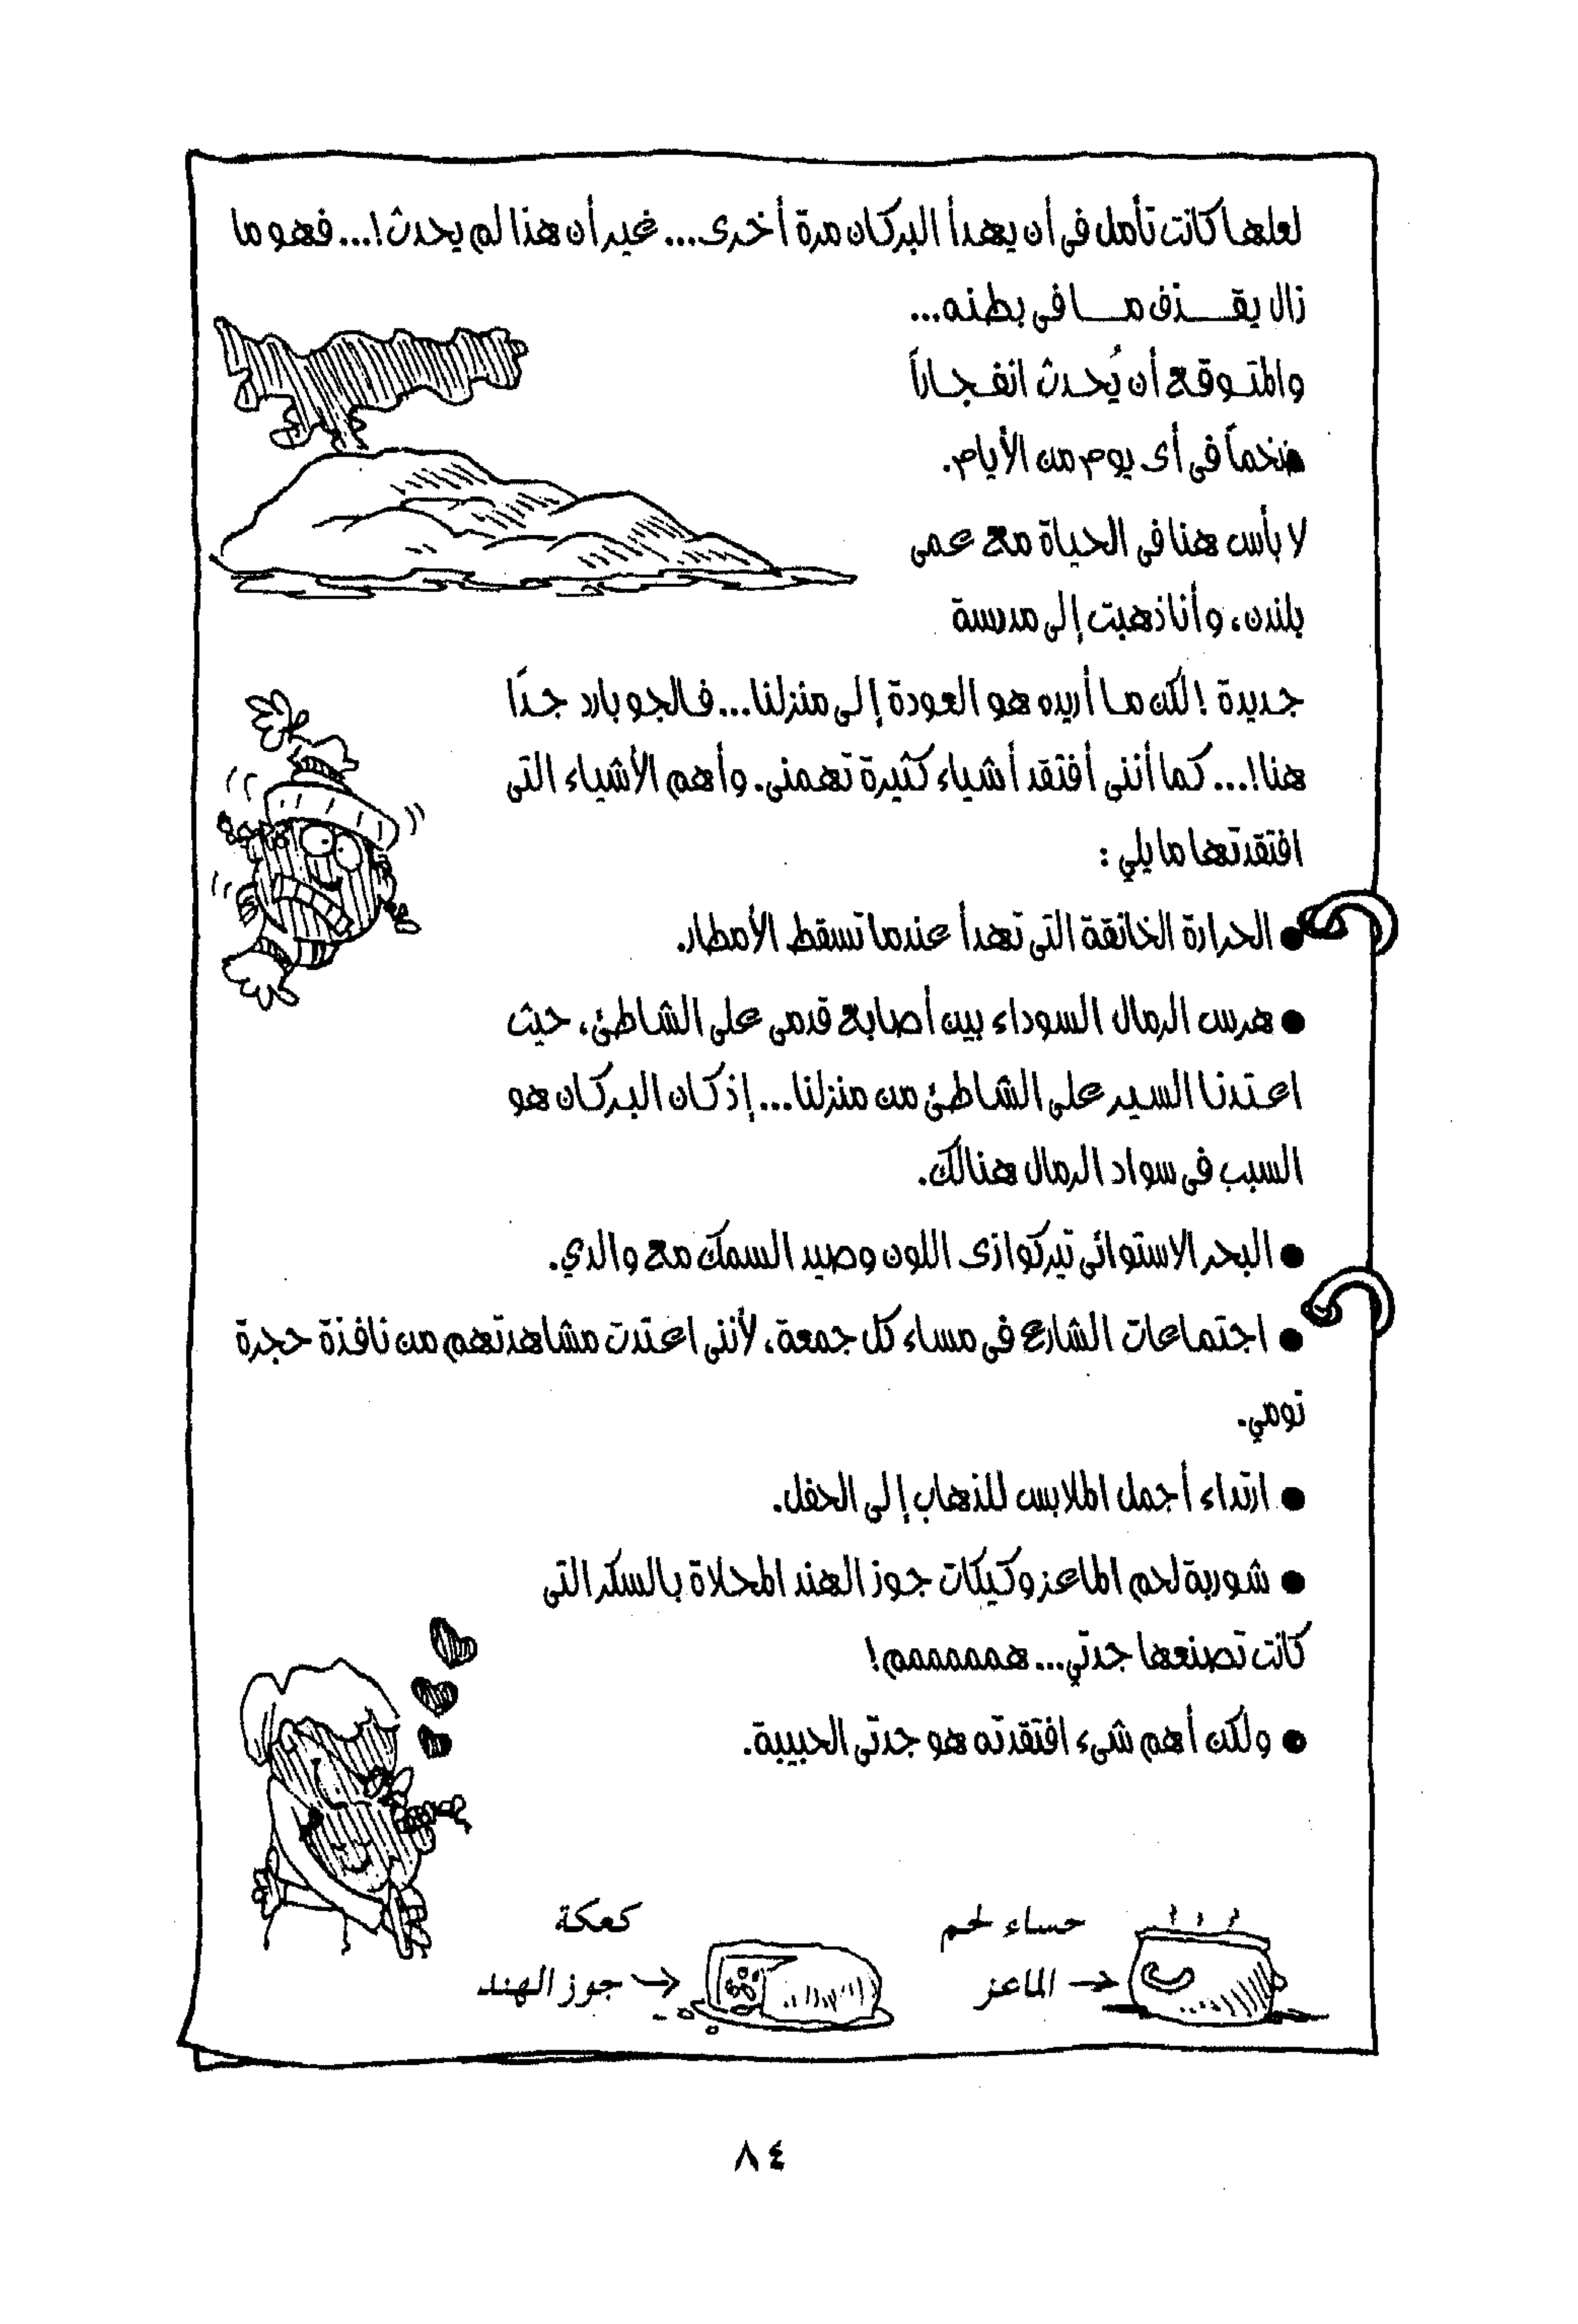 لعلها كانت تأمل فى أن يهدأ البركان مرة أخرى... غير أن هذا لم يحدث!... فهو ما
زال يقذف ما فى بطنه...
والمتوقع أن يُحدث انفجاراً
ضخماً فى أى يوم من الأيام.
لا بأس هنا فى الحياة مع عمى
بلندن، وأنا ذهبت إلى مدرسة
جديدة! لكن ما أريده هو العودة إلى منزلنا... فالجو بارد جدًا
هنا!... كما أننى أفتقد أشياء كثيرة تهمنى. وأهم الأشياء التى
افتقدتها ما يلي:
● الحرارة الخانقة التى تهدأ عندما تسقط الأمطار.
● هرس الرمال السوداء بين أصابع قدمى على الشاطئ، حيث
اعتدنا السير على الشاطئ من منزلنا... إذ كان البركان هو
السبب فى سواد الرمال هنالك.
● البحر الاستوائى تيركوازى اللون وصيد السمك مع والدي.
● اجتماعات الشارع فى مساء كل جمعة، لأننى اعتدت مشاهدتهم من نافذة حجرة
نومي.
● ارتداء أجمل الملابس للذهاب إلى الحفل.
● شوربة لحم الماعز وكيكات جوز الهند المحلاة بالسكر التى
كانت تصنعها جدتي... همممممم!
● ولكن أهم شىء افتقدته هو جدتى الحبيبة.
حساء لحم
الماعز
كعكة
جوز الهند
٨٤